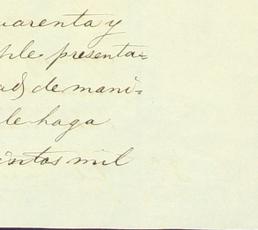 uarenta y
ple presenta=
ad, de mani=
le haga
intos mil